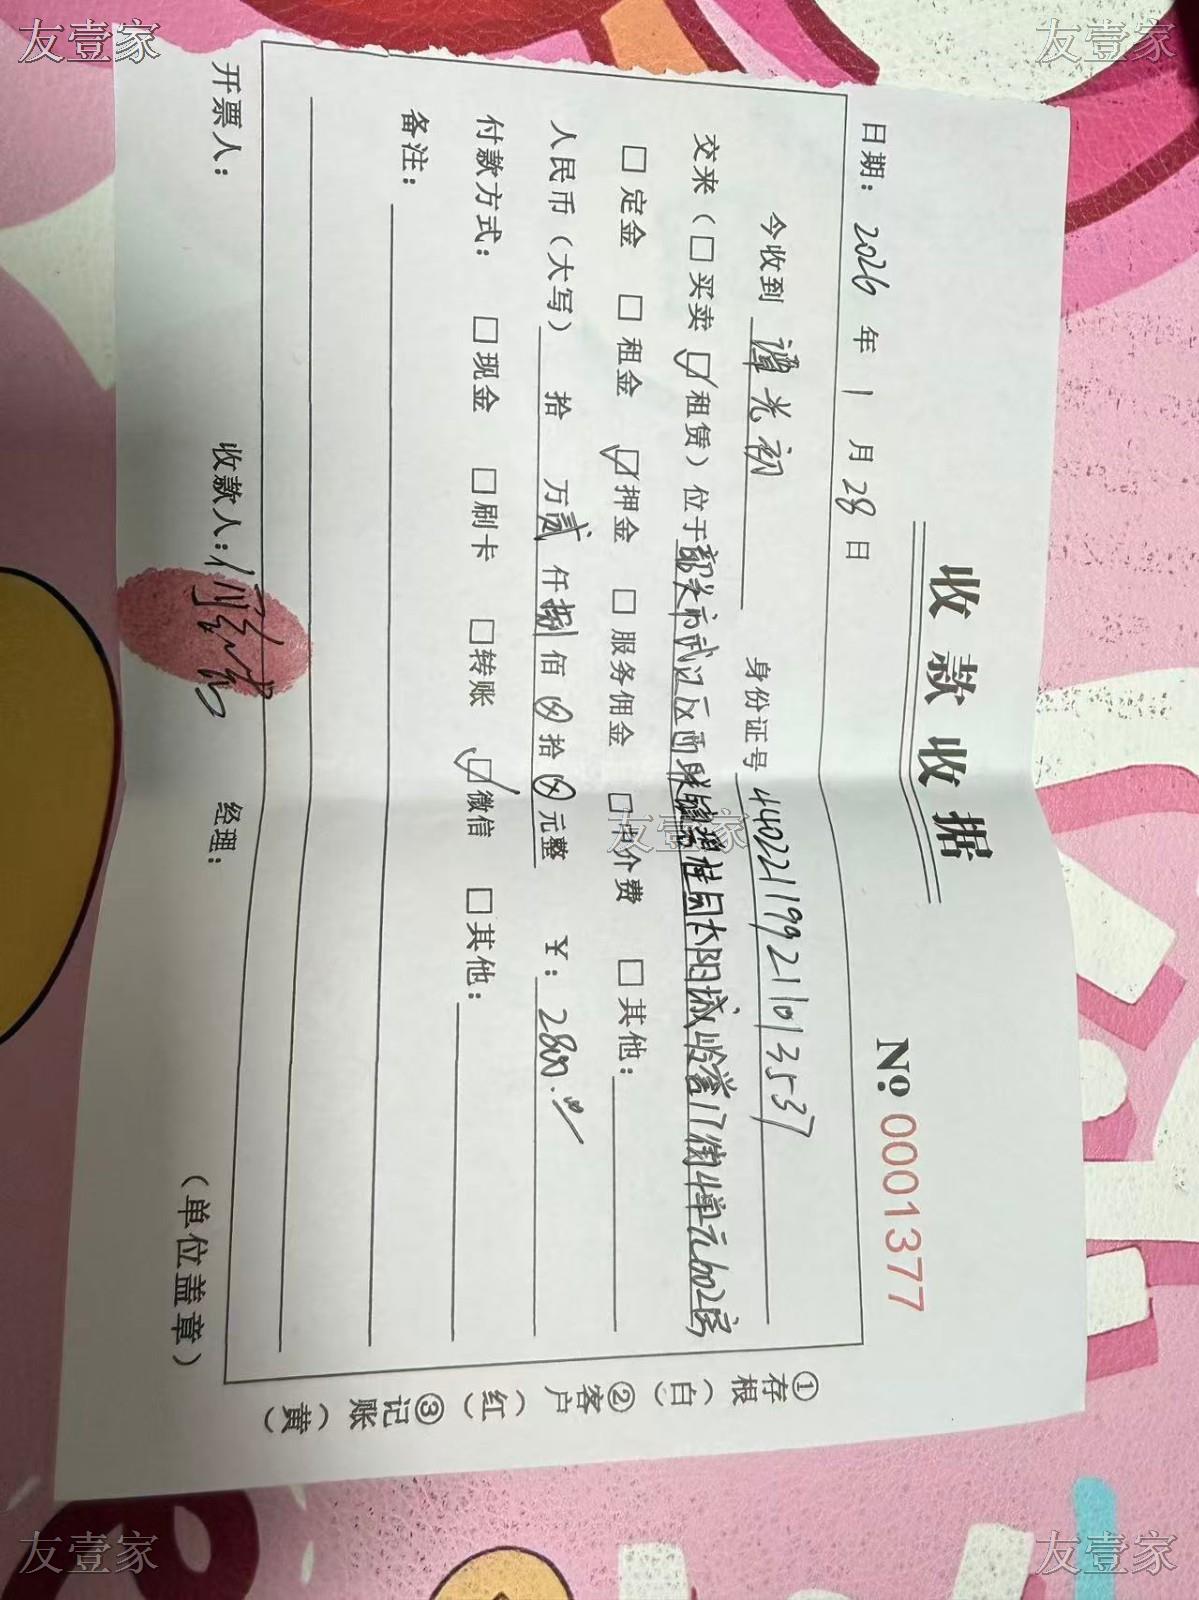 友壹家
友壹家
收款收据
No. 0001377
日期：2026年1月28日
今收到 谭光初 身份证号 440221199211013537
交来（□买卖 ☑租赁）位于韶关市武江区西联镇碧桂园太阳城 17街4单元602房
□定金 □租金 ☑押金 □服务佣金 □中介费 □其他：
人民币（大写） 拾 万贰仟捌佰⊗拾⊗元整 ￥：2800.00
付款方式： □现金 □刷卡 □转账 ☑微信 □其他：
备注：
开票人： 收款人： 经理： （单位盖章）
①存根（白） ②客户（红） ③记账（黄）
友壹家
友壹家
友壹家